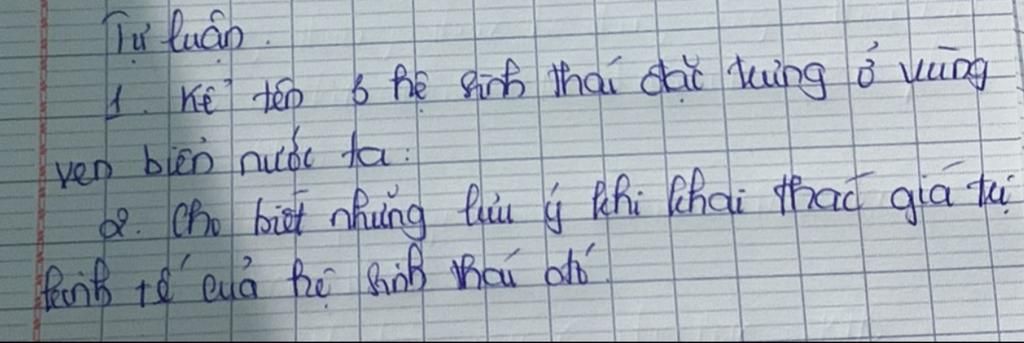 Tự luận.
1. Kể tên 6 hệ sinh thái đặc trưng ở vùng
ven biển nước ta:
2. Cho biết những lưu ý khi khai thác giá trị
kinh tế của hệ sinh thái đó.